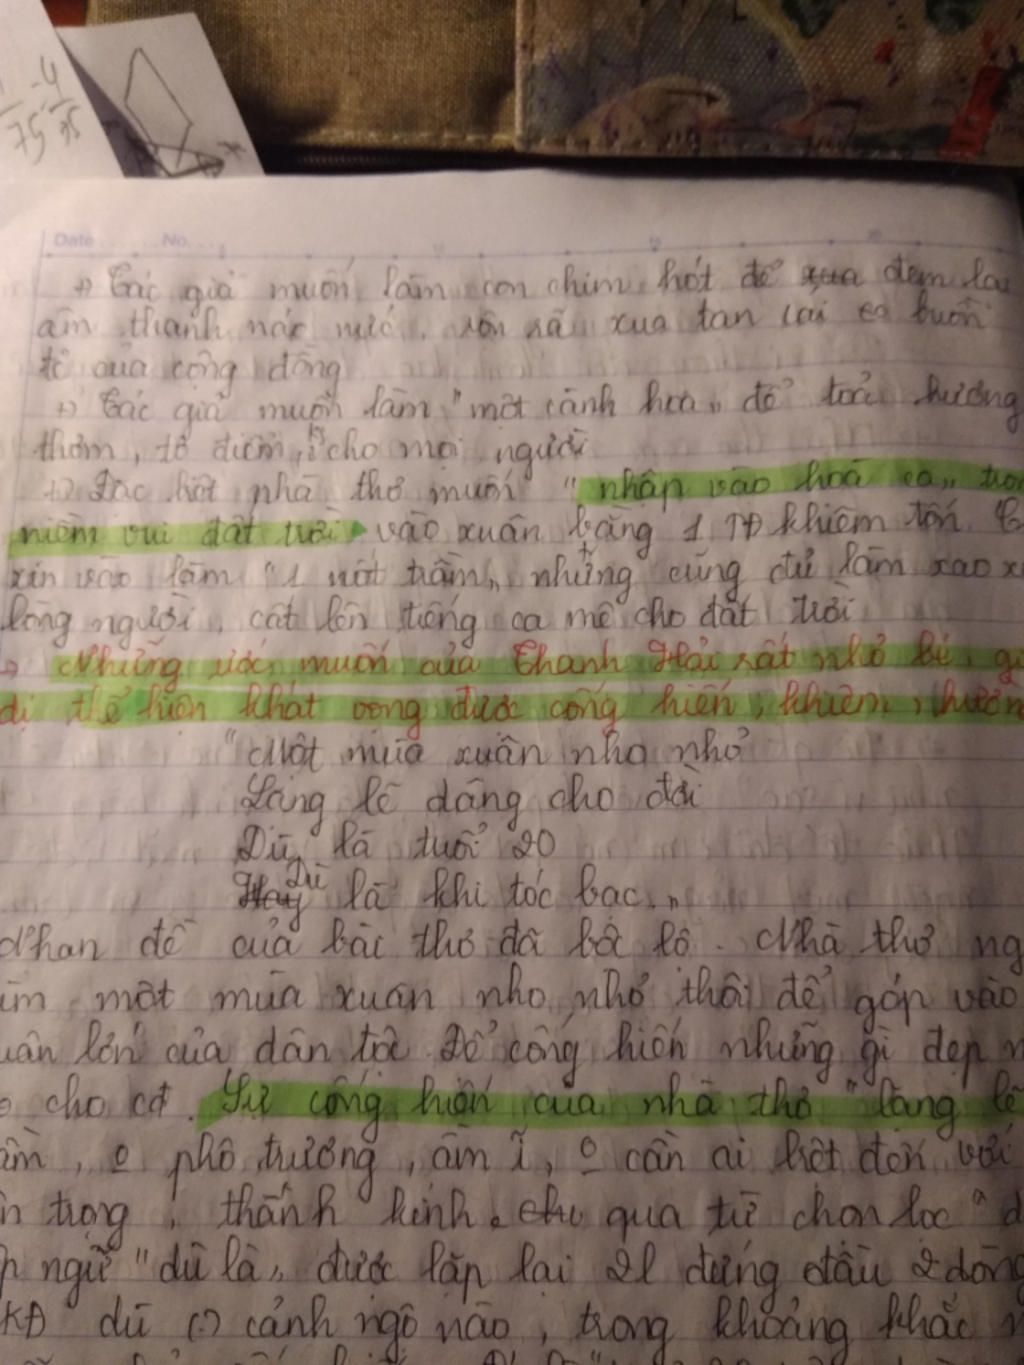 -4
75
35
Date No.
+) Tác giả muốn làm con chim hót để đem lại
âm thanh náo nức, rộn rã xua tan cái buồn
tẻ của cộng đồng
+) Tác giả muốn làm "một cành hoa" để toả hương
thơm, tô điểm, cho mọi người
+) Đặc biệt nhà thơ muốn "nhập vào hoà ca"
niềm vui đất trời vào xuân bằng 1 TĐ khiêm tốn
xin vào làm "1 nốt trầm" nhưng cũng đủ làm xao
lòng người, cất lên tiếng ca mê cho đất trời
→ Những ước muốn của Thanh Hải rất nhỏ bé,
dị thể hiện khát vọng được cống hiến, khiêm
"Một mùa xuân nho nhỏ
Lặng lẽ dâng cho đời
Dù là tuổi 20
Dù là khi tóc bạc"
Nhan đề của bài thơ đã bộc lộ. Nhà thơ
một mùa xuân nho nhỏ thôi để góp vào
lớn của dân tộc. Để cống hiến những gì đẹp
cho cđ. Sự cống hiến của nhà thơ "lặng lẽ
, o phô trương, ầm ĩ, o cần ai biết đến với
trọng, thành kính. qua từ chọn lọc "
ngữ "dù là" được lặp lại 2l đứng đầu 2 dòng
KĐ dù (.) cảnh ngộ nào, trong khoảng khắc